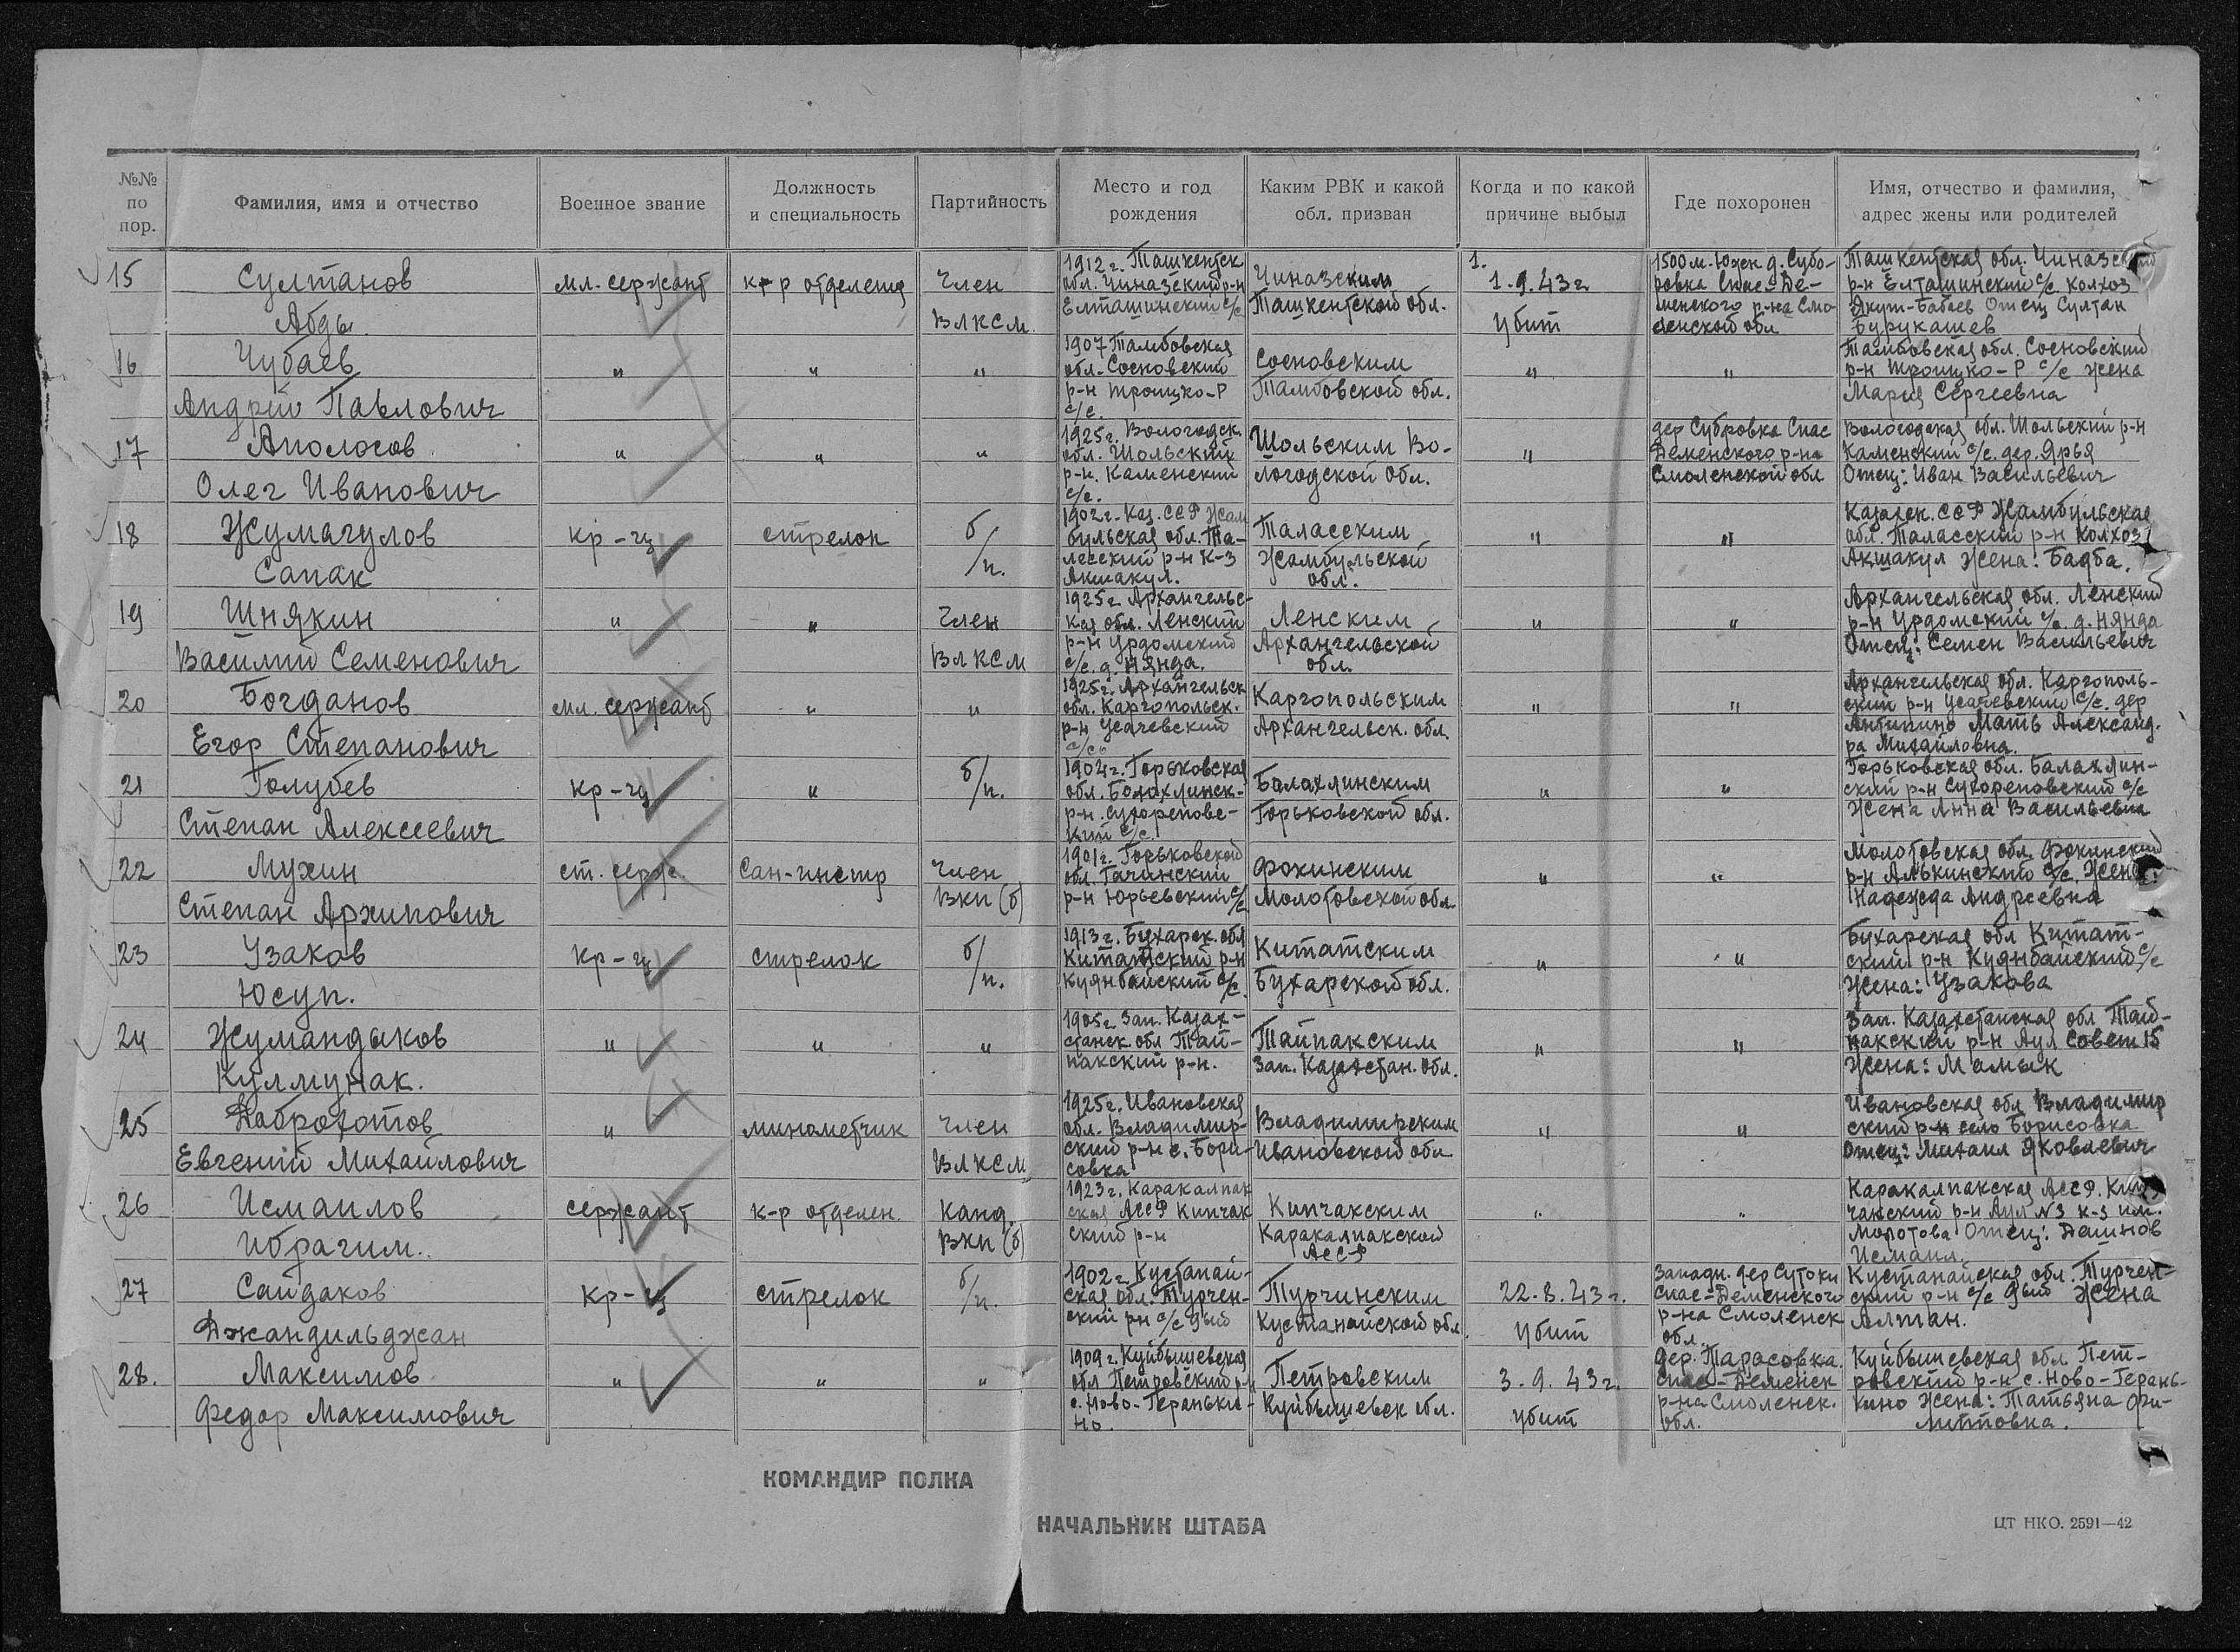 №№ по пор.
Фамилия, имя и отчество
Военное звание
Должность и специальность
Партийность
Место и год рождения
Каким РВК и какой обл. призван
Когда и по какой причине выбыл
Где похоронен
Имя, отчество и фамилия, адрес жены или родителей
15
Султанов
Абды
мл. сержант
к-р отделения
Член
ВЛКСМ.
1912 г. Ташкентск
обл. Чиназский р-н
Елташинский с/с
Чиназским
Ташкентской обл.
1.
1.9.43 г
Убит
1500 м. Южн д. Субо-
ровка Спас-Де-
менского р-на Смо-
ленской обл
Ташкентская обл. Чиназский
р-н Елташинский с/с. колхоз
Якут-Бабаев Отец Султан
Бурукашев
16
Чубаев
Андрей Павлович
"
"
"
1907 Тамбовская
обл. Сосновский
р-н Троицко-Р
с/с.
Сосновским
Тамбовской обл.
"
"
Тамбовская обл. Сосновский
р-н Троицко-Р с/с жена
Мария Сергеевна
17
Аполосов
Олег Иванович
"
"
"
1925 г. Вологодск.
обл. Шольский
р-н. Каменский
с/с.
Шольским Во-
логодской обл.
"
дер Субровка Спас
Деменского р-на
Смоленской обл
Вологодская обл. Шольский р-н
Каменский с/с. дер. Ярья
Отец: Иван Васильевич
18
Жумагулов
Сапак
кр-ц
стрелок
б/п.
1902 г. Каз. ССР Жам
бульская обл. Та-
лесский р-н К-з
Акшакул.
Таласским
Жамбульской
обл.
"
"
Казахск. ССР Жамбульская
обл. Таласский р-н колхоз
Акшакул Жена: Бадба.
19
Шнякин
Василий Семенович
"
"
Член
ВЛКСМ
1925 г. Архангельс-
кая обл. Ленский
р-н Урдомский
с/с. д. Нянда.
Ленским
Архангельской
обл.
"
"
Архангельская обл. Ленский
р-н Урдомский с/с. д. Нянда
Отец: Семен Васильевич
20
Богданов
Егор Степанович
мл. сержант
"
"
1925 г. Архангельск
обл. Каргопольск.
р-н Усачевский
с/с
Каргопольским
Архангельск. обл.
"
"
Архангельская обл. Каргополь-
ский р-н Усачевский с/с. дер
Антипино Мать Александ-
ра Михайловна.
21
Голубев
Степан Алексеевич
кр-ц
"
б/п.
1904 г. Горьковская
обл. Болахлинск-
р-н. Сухоренове-
кий с/с.
Балахлинским
Горьковской обл.
"
"
Горьковская обл. Балахлин-
ский р-н Сухореновский с/с
Жена Анна Васильевна
22
Мухин
Степан Архипович
ст. серж.
Сан-инстр
Член
ВКП (б)
1901 г. Горьковской
обл. Гагинский
р-н Юрьевский с/с
Фокинским
Молотовской обл.
"
"
Молотовская обл. Фокинский
р-н Алькинский с/с. Жена:
Надежда Андреевна
23
Узаков
Юсуп.
кр-ц
стрелок
б/п.
1913 г. Бухарск. обл
Китатский р-н
Куянбайский с/с.
Китатским
Бухарской обл.
"
"
Бухарская обл Китат-
ский р-н Куянбайский с/с
Жена: Узакова
24
Жумандыков
Кулмунак.
"
"
"
1905 г. Зап. Казах-
станск. обл Тай-
пакский р-н.
Тайпакским
Зап. Казахстан. обл.
"
"
Зап. Казахстанская обл Тай-
пакский р-н Аул Совет 15
Жена: Мамык
25
Доброхотов
Евгений Михайлович
"
минометчик
Член
ВЛКСМ
1925 г. Ивановская
обл. Владимир-
ский р-н с. Бори-
совка
Владимирским
Ивановской обл
"
"
Ивановская обл Владимир
ский р-н село Борисовка
Отец: Михаил Яковлевич
26
Исмаилов
Ибрагим.
сержант
к-р отделен.
Канд.
ВКП (б)
1923 г. Каракалпак
ская АССР Кипчак
ский р-н
Кипчакским
Каракалпакской
АССР
"
"
Каракалпакская АССР. Кип
чакский р-н Аул №3 к-з им.
Молотова Отец: Дашнов
Исмаил.
27
Сайдаков
Джандильджан
кр-ц
стрелок
б/п.
1902 г. Кустанай-
ская обл. Турчен-
ский рн с/с 9ый
Турчинским
Кустанайской обл.
22.8.43 г.
Убит
Западн. дер Сутоки
Спас-Деменского
р-на Смоленск
обл.
Кустанайская обл. Турчен-
ский р-н с/с 9ый Жена
Алтан.
28.
Максимов
Федор Максимович
"
"
"
1909 г. Куйбышевская
обл Петровский р-н
с. Ново-Гераньки-
но.
Петровским
Куйбышевск обл.
3.9.43 г.
убит
Дер. Тарасовка.
Спас-Деменск
р-на Смоленск.
обл.
Куйбышевская обл. Пет-
ровский р-н с. Ново-Герань-
кино Жена: Татьяна Фи-
липповна.
КОМАНДИР ПОЛКА
НАЧАЛЬНИК ШТАБА
ЦТ НКО. 2591—42